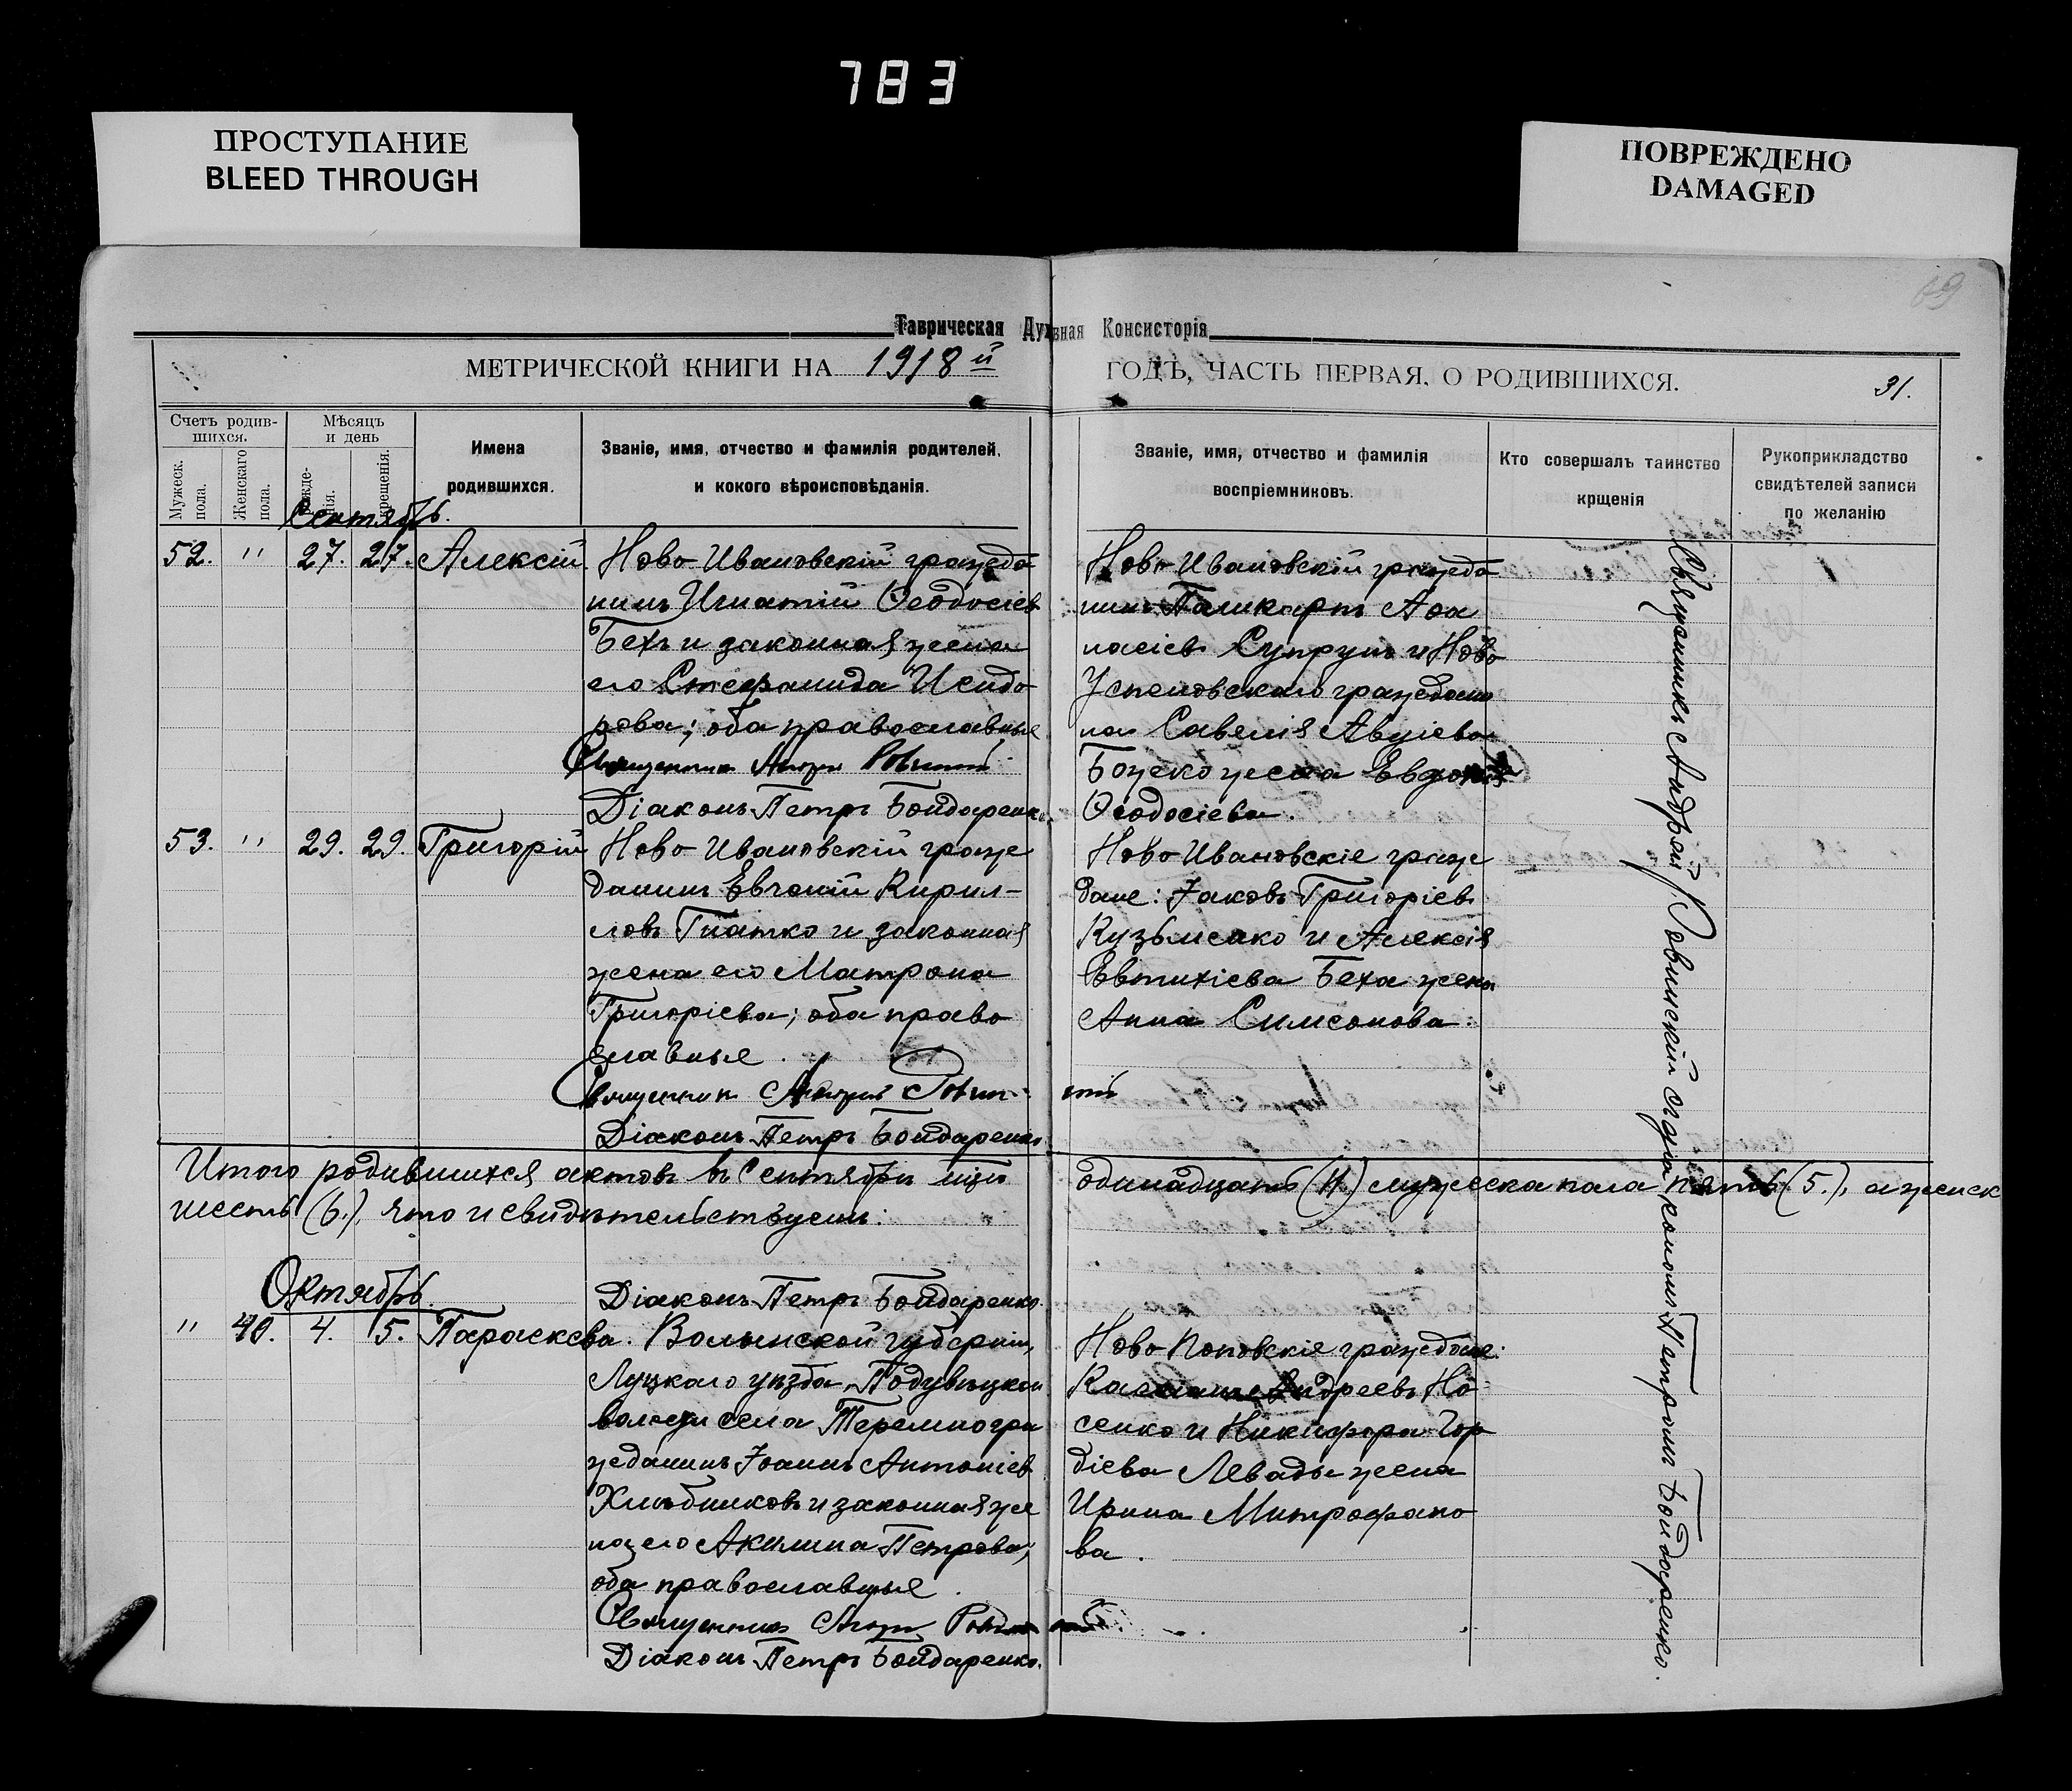 783
ПРОСТУПАНИЕ
BLEED THROUGH
ПОВРЕЖДЕНО
DAMAGED
69
Таврическая Духовная Консисторія
МЕТРИЧЕСКОЙ КНИГИ НА 1918й
ГОДЪ, ЧАСТЬ ПЕРВАЯ, О РОДИВШИХСЯ.
31.
Счетъ родив-
шихся.
Мужеск.
пола.
Женскаго
пола.
Мѣсяцъ
и день
рожде-
нія.
крещенія.
Имена
родившихся.
Званіе, имя, отчество и фамилія родителей,
и кокого вѣроисповѣданія.
Званіе, имя, отчество и фамилія
воспріемниковъ.
Кто совершалъ таинство
крщенія
Рукоприкладство
свидѣтелей записи
по желанію
Сентябрь.
52. " 27. 27. Алексій.
Ново Ивановскій гражда
нинъ Игнатій Ѳеодосіев
Бехъ и законная жена
его Стефанида Исидо
рова; оба православные
Священникъ Андрей
Діаконъ Петръ Бондаренко.
Ново-Ивановскій гражда
нинъ Поликарпъ Аѳа
насіев Супрунъ и Ново
Успеновскаго граждани
на Савелія
жена Евдокія
Ѳеодосіева.
53. " 29. 29. Григорій
Ново Ивановскій граж
данинъ Евгеній Кирил-
ловъ Гнатко и законная
жена его Матрона
Григоріева; оба право
славные.
Священникъ Андрей Ровин-
скій
Діаконъ Петръ Бондаренко
Ново Ивановскіе граж
дане: Іаковъ Григоріев
Кузьменко и Алексія
Евтихіева Беха жена
Анна Симеонова.
Итого родившихся актовъ въ Сентябрѣ мцѣ
одинадцать (11.) мужеска пола пять (5.), а женск
шесть (6.), что и свидѣтельствуемъ:
Діаконъ Петръ Бондаренко.
Октябрь.
" 40. 4. 5. Параскева.
Волынской губерніи,
Луцкаго уѣзда,
волости села Теремно гра
жданинъ Іоаннъ Антоніев
Хлѣбниковъ и законная же
на его Акилина Петрова;
оба православные.
Священникъ Андрей
Діаконъ Петръ Бондаренко.
Ново Поповскіе граждане:
Андреевъ Но-
сенко и Никифора Гор
діева Левады жена
Ирина Митрофано
ва.
Священникъ Андрей Ровинскій съ діакономъ Петромъ Бондаренко.